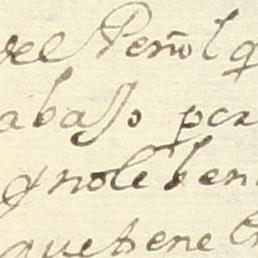 del Peñol q
abaxo por
q nole ben
que tiene